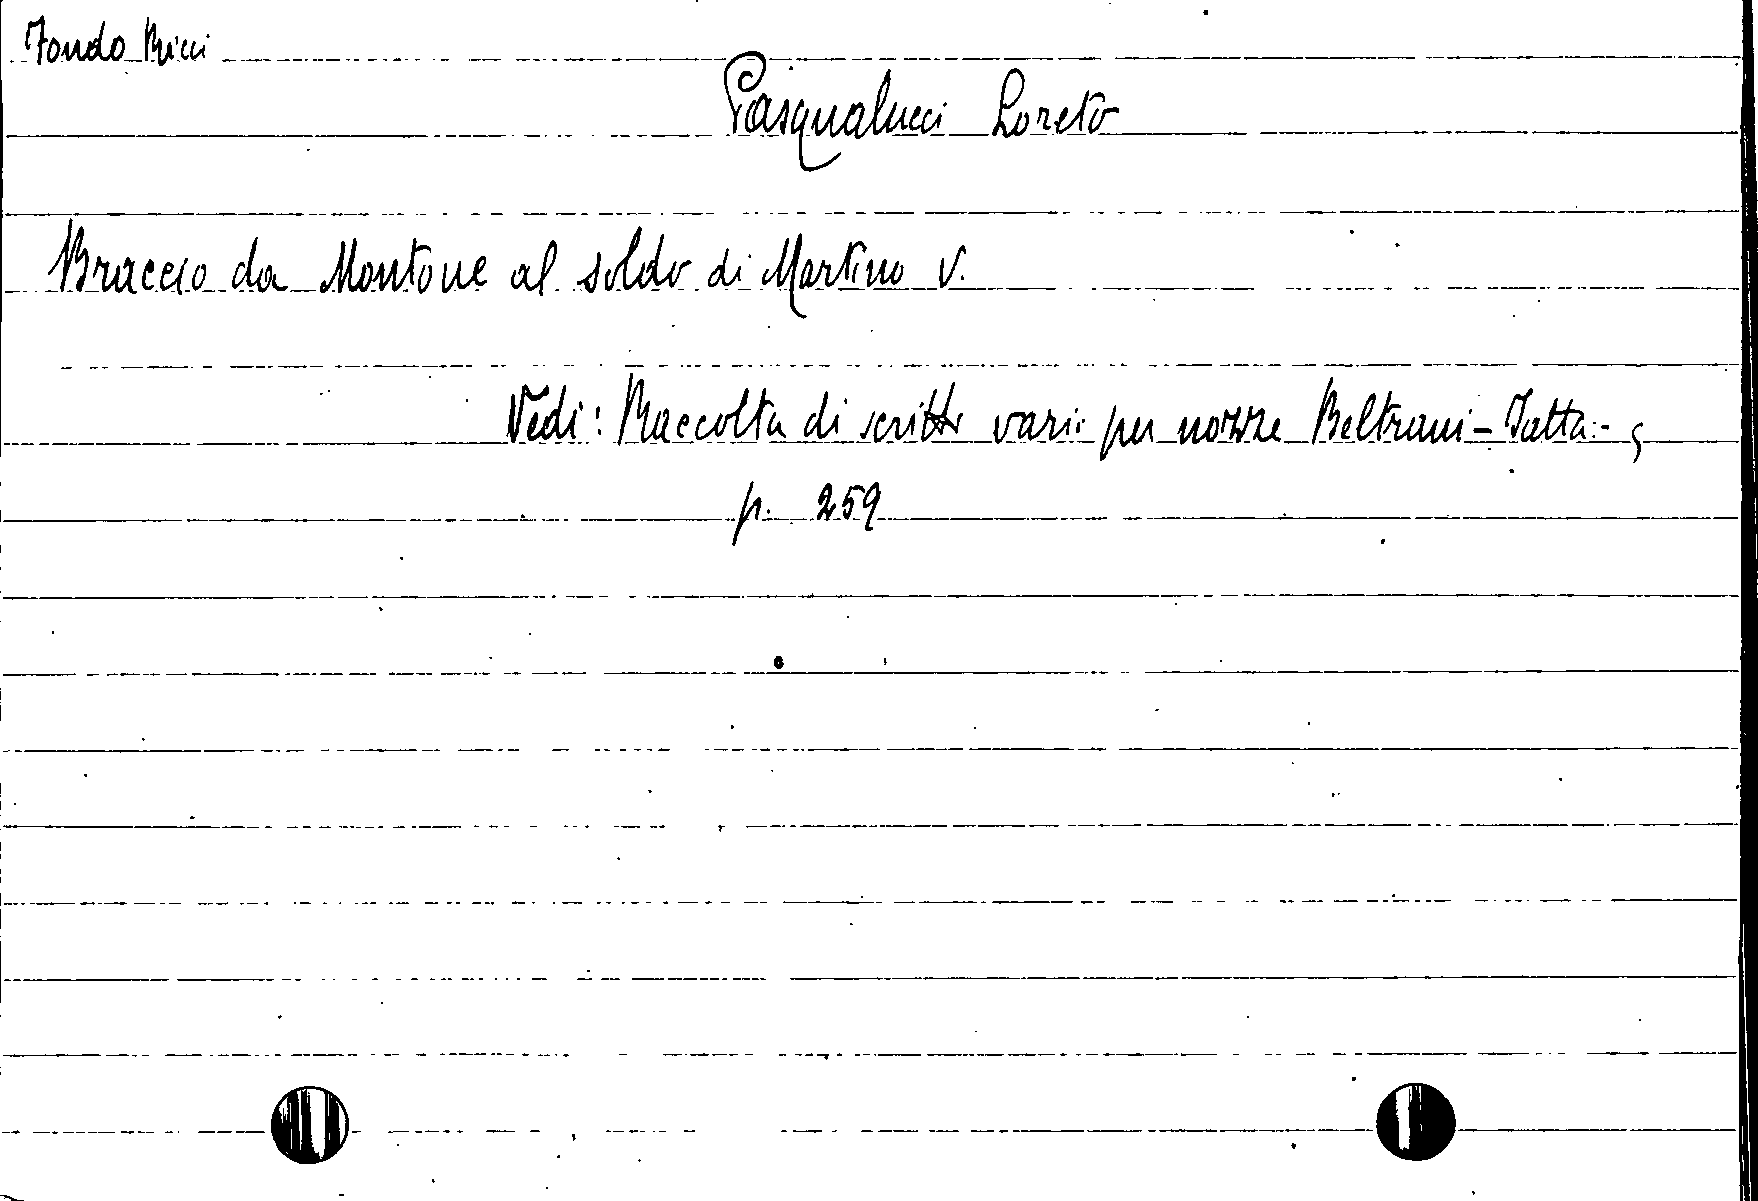 Fondo Ricci
Pasqualucci Loreto
Braccio da Montone al soldo di Martino V.
Vedi: Raccolta di scritti varii per nozze Beltrami-Jatta-,
p. 259